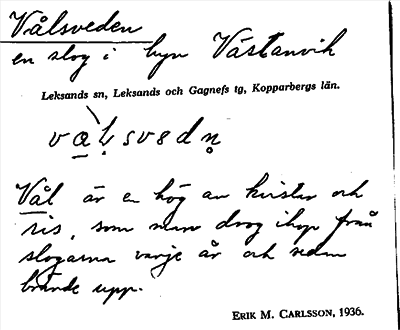 Vålsveden
en slog i byn Västanvik
Leksands sn, Leksands och Gagnefs tg, Kopparbergs län.
vạḷsvedn̥
Vål är en hög av kvistar och
ris, som man drog ihop från
slogarna varje år och sedan
brände upp.
ERIK M. CARLSSON, 1936.